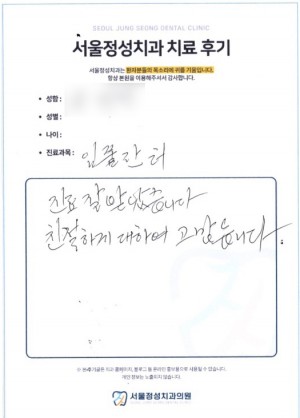 SEOUL JUNG SEONG DENTAL CLINIC
서울정성치과 치료 후기
서울정성치과는 환자분들의 목소리에 귀를 기울입니다.
항상 본원을 이용해주셔서 감사합니다.
• 성함 :
• 성별 :
• 나이 :
• 진료과목 : 임플란터
진료 잘 받았습니다
친절하게 대하여 고맙습니다.
서울정성치과의원